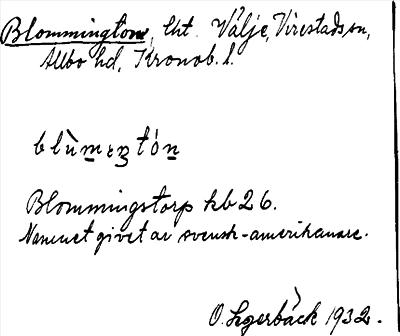 Blommington, lht. Välje, Virestads sn,
Allbo hd, Kronob. l.
blùmeʒtón
Blommingstorp kb 26.
Namnet givet av svensk-amerikanare.
O. Lgerbäck 1932.